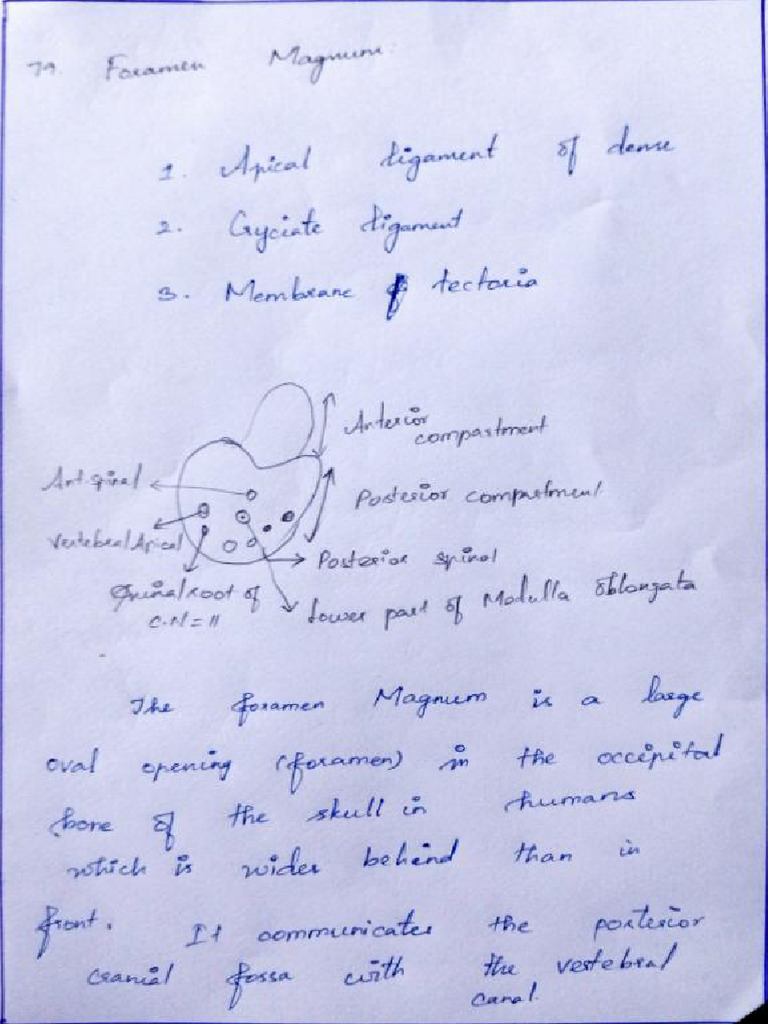 79. Foramen Magnum.
1. Apical ligament of dense
2. Cryciate ligament
3. Membrane of tectoria
Anterior
compartment
Art spinal
Posterior compartment
Vertebral Apical
Posterior spinal
Spinal root of
C.N = 11
Lower part of Modulla oblongata
The foramen Magnum is a large
oval opening (foramen) in the occipital
bone of the skull in humans
which is wider behind than in
front. It communicates the posterior
cranial fossa with the vertebral
canal.